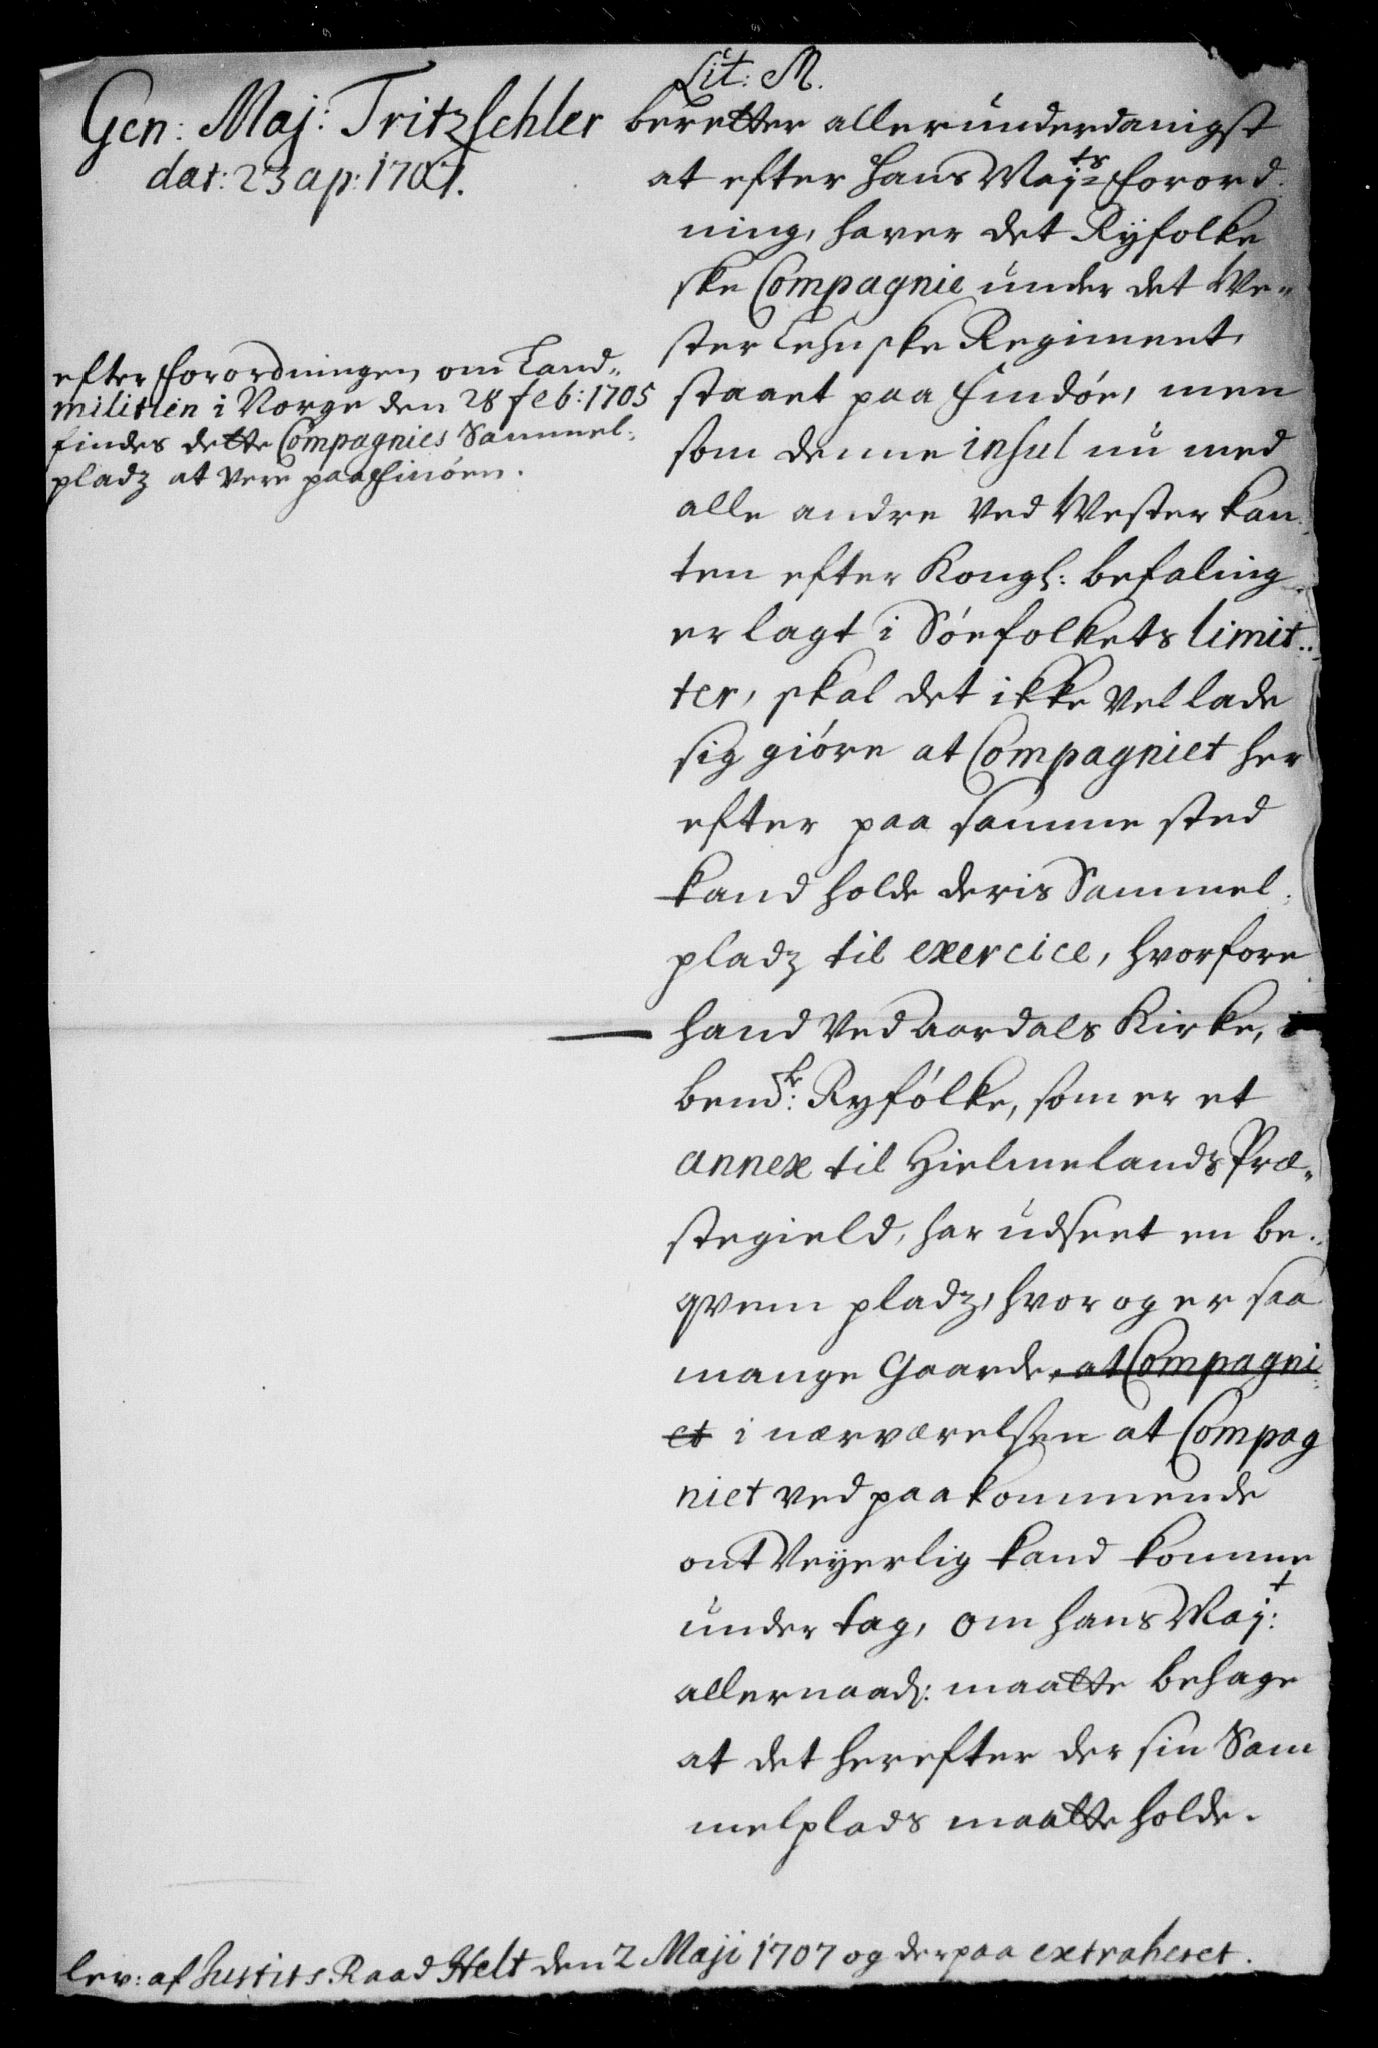 Lit: M.
Gen: Maj: Tritzschler
dat: 23 ap: 1707.
beretter allerunderdanigst
at efter Hans Maj:ts Forord-
ning, haver det Ryfolke
ske Compagnie under det We-
ster Lehnske Regiment,
staaet paa Findöe, men
som denne insul nu med
alle andre ved Westerkan-
ten efter Kongl: befaling
er lagt i Söefolkets limit-
ter, skal det ikke vel lade
sig giöre at Compagniet her
efter paa samme sted
kand holde deris Sammel-
pladz til exercice, hvorfore
hand ved Aardals Kirke, i
bemd:te Ryfölke, som er et
annex til Hielmelands Præ-
stegield, har udseet en be-
qvem pladz, hvor og er saa
mange Gaarde, at Compagni
et i nærværelsen at Compag
niet ved paakommende
ont Veyerlig kand komme
under tag, om Hans Maj:t
allernaad: maatte behage
at det herefter der sin Sam
melplads maatte holde.
efter Forordningen om Land-
militien i Norge den 28 feb: 1705
findes dette Compagnies Sammel-
pladz at vere paa Finöen.
lev: af Justits Raad Helt den 2 Maji 1707 og derpaa extraheret.